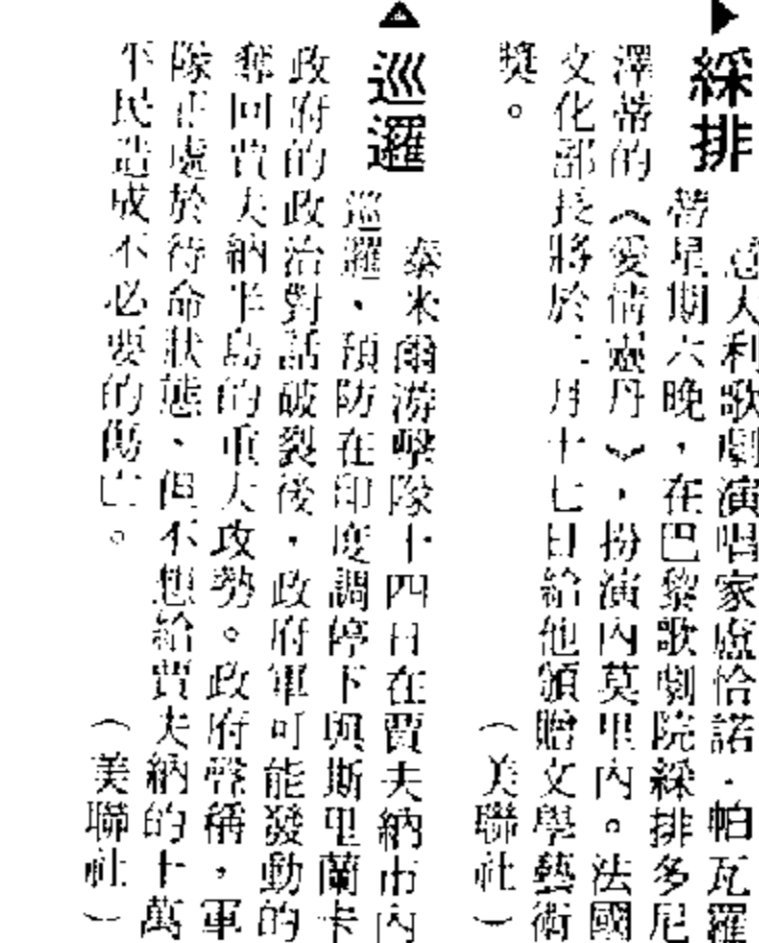 ▶綵排
意大利歌劇演唱家盧恰諾·帕瓦羅
蒂星期六晚，在巴黎歌劇院綵排多尼
澤蒂的《愛情靈丹》，扮演內莫里內。法國
文化部長將於二月十七日給他頒贈文學藝術
獎。
（美聯社）
▲巡邏
泰米爾游擊隊十四日在賈夫納市內
巡邏、預防在印度調停下與斯里蘭卡
政府的政治對話破裂後，政府軍可能發動的
奪回賈夫納半島的重大攻勢。政府聲稱，軍
隊正處於待命狀態、但不想給賈夫納的十萬
平民造成不必要的傷亡。
（美聯社）